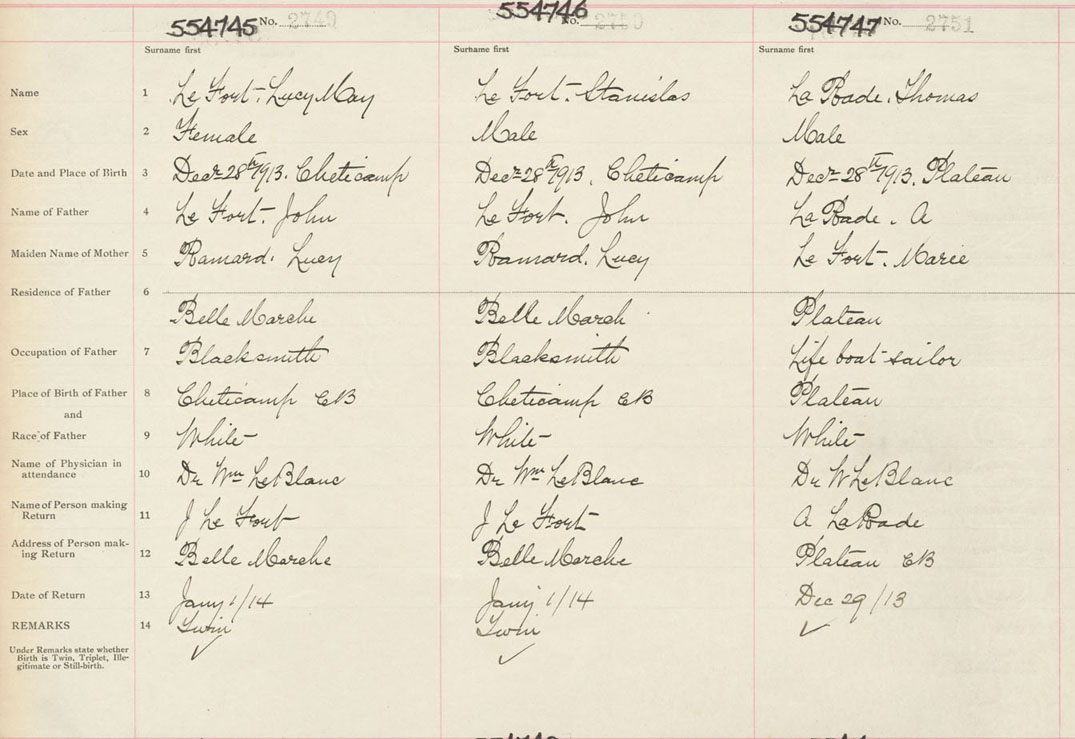 554745 No. 2749
554746 No. 2750
554747 No. 2751
Surname first Surname first Surname first
Name 1 Le Fort. Lucy May Le Fort. Stanislas La Bade. Thomas
Sex 2 Female Male Male
Date and Place of Birth 3 Decr 28th 1913. Cheticamp Decr 28th 1913. Cheticamp Decr 28th 1913. Plateau
Name of Father 4 Le Fort. John Le Fort. John La Bade. A
Maiden Name of Mother 5 Ramard. Lucy Ramard. Lucy Le Fort. Marie
Residence of Father 6
Belle Marche Belle March Plateau
Occupation of Father 7 Blacksmith Blacksmith Life boat sailor
Place of Birth of Father 8 Cheticamp CB Cheticamp CB Plateau
and
Race of Father 9 White White White
Name of Physician in
attendance 10 Dr Wm LeBlanc Dr Wm LeBlanc Dr W LeBlanc
Name of Person making
Return 11 J Le Fort J Le Fort A LaBade
Address of Person mak-
ing Return 12 Belle Marche Belle Marche Plateau CB
Date of Return 13 Jany 1/14 Jany 1/14 Dec 29/13
REMARKS 14 Twin Twin
Under Remarks state whether
Birth is Twin, Triplet, Ille-
gitimate or Still-birth.